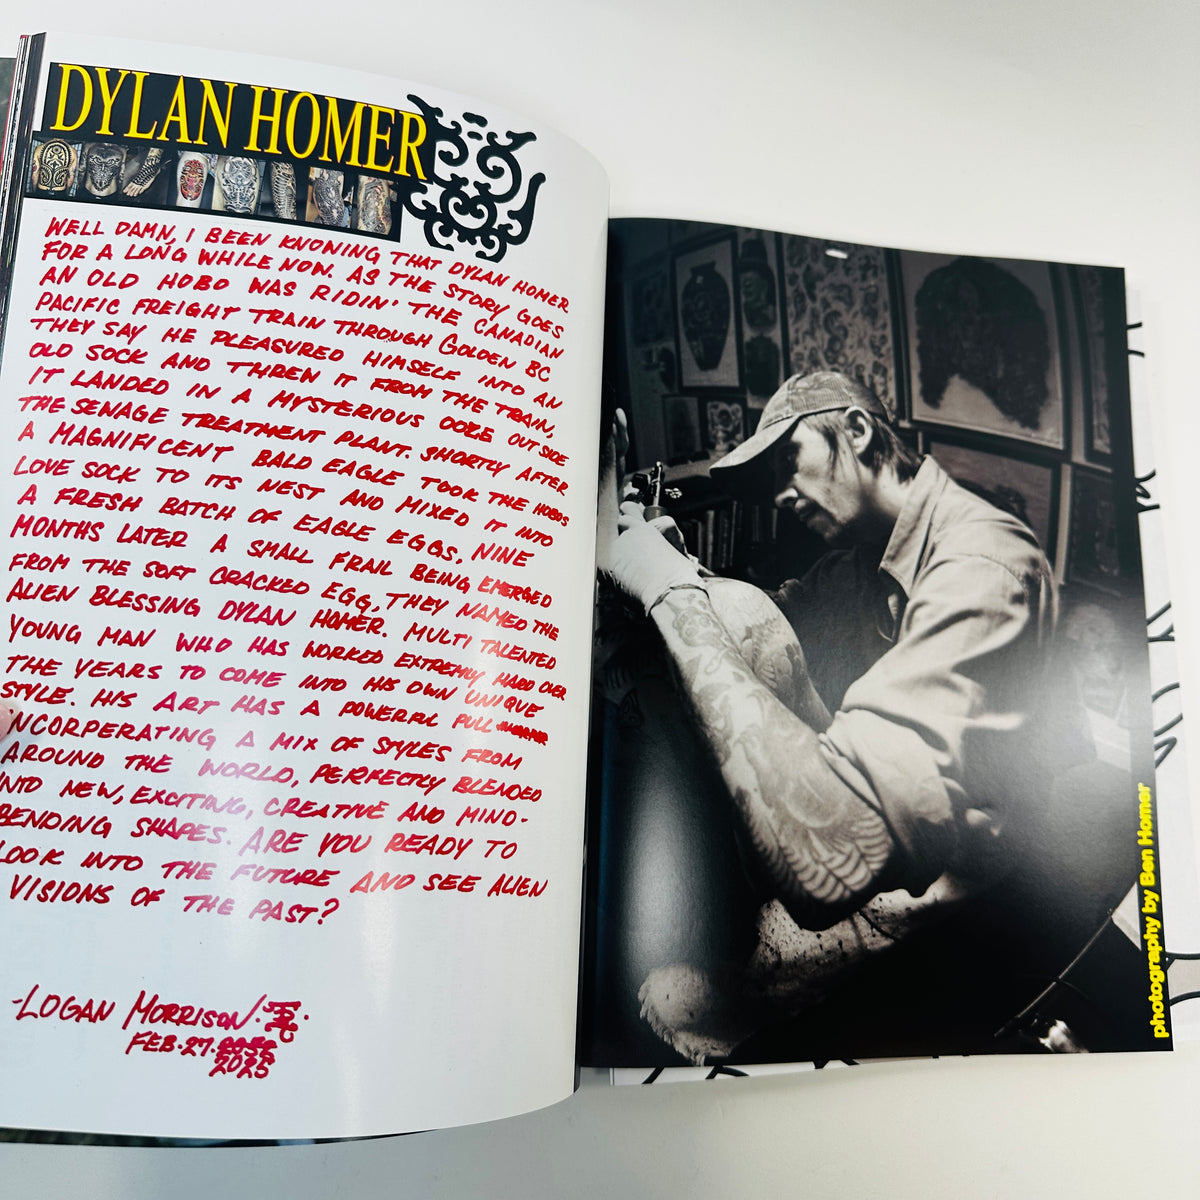 DYLAN HOMER
WELL DAMN, I BEEN KNOWING THAT DYLAN HOMER
FOR A LONG WHILE NOW. AS THE STORY GOES
AN OLD HOBO WAS RIDIN' THE CANADIAN
PACIFIC FREIGHT TRAIN THROUGH GOLDEN BC
THEY SAY HE PLEASURED HIMSELF INTO AN
OLD SOCK AND THREW IT FROM THE TRAIN,
IT LANDED IN A MYSTERIOUS OOZE OUTSIDE
THE SEWAGE TREATMENT PLANT. SHORTLY AFTER
A MAGNIFICENT BALD EAGLE TOOK THE HOBOS
LOVE SOCK TO ITS NEST AND MIXED IT INTO
A FRESH BATCH OF EAGLE EGGS. NINE
MONTHS LATER A SMALL FRAIL BEING EMERGED
FROM THE SOFT CRACKED EGG, THEY NAMED THE
ALIEN BLESSING DYLAN HOMER. MULTI TALENTED
YOUNG MAN WHO HAS WORKED EXTREMLY HARD OVER
THE YEARS TO COME INTO HIS OWN UNIQUE
STYLE. HIS ART HAS A POWERFUL PULL
INCORPERATING A MIX OF STYLES FROM
AROUND THE WORLD, PERFECTLY BLENDED
INTO NEW, EXCITING, CREATIVE AND MIND-
BENDING SHAPES. ARE YOU READY TO
LOOK INTO THE FUTURE AND SEE ALIEN
VISIONS OF THE PAST?
-LOGAN MORRISON.
FEB.27.
2025
photography by Ben Homer